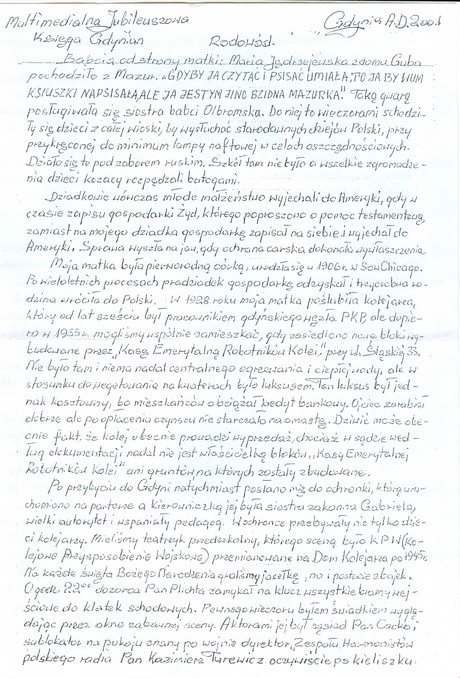 Multimedialna Jubileuszowa Gdynia A.D. 2001
Księga Gdynian Rodowód.
Babcia od strony matki: Maria Jędrzejewska z domu Guba
pochodziło z Mazur. "GDYBY JA CZYTAĆ I PSISAĆ UMIAŁA, TO JA BY WUM
KSIUSZKI NAPSISAŁA, ALE JA JESTYM JINO BZIDNA MAZURKA." Taką gwarą
posługiwała się siostra babci Olbromska. Do niej to wieczorami schodzi-
ły się dzieci z całej wioski, by wysłuchać starodawnych dziejów Polski, przy
przykręconej do minimum lampy naftowej w celach oszczędnościowych.
Działo się to pod zaborem ruskim. Szkół tam nie było a wszelkie zgromadze-
nia dzieci kozacy rozpędzali batogami.
Dziadkowie wówczas młode małżeństwo wyjechali do Ameryki, gdy w
czasie zapisu gospodarki Żyd, którego poproszono o pomoc testamentową,
zamiast na mojego dziadka gospodarkę zapisał na siebie i wyjechał do
Ameryki. Sprawa wyszła na jaw, gdy ochrana carska dokonała wywłaszczenia.
Moja matka była pierworodną córką, urodzła się w 1906r. w San Chicago.
Po wieloletnich procesach pradziadek gospodarkę odzyskał i trzyosobwa ro-
dzina wróciła do Polski. W 1928 roku moja matka poślubiła kolejarza,
który od lat sześciu był pracownikem gdyńskiego węzła P.K.P., ale dopie-
ro w 1935r. mogliśmy wspólnie zamieszkać, gdy zasiedlono nowe bloki wy-
budowane przez "Kasę Emerytalną Robotników Kolei" przy ul. Śląskiej 33.
Nie było tam i niema nadal centralnego ogrzewania i ciepłej wody, ale w
stosunku do wegetowania na kwaterach było luksusem. Ten luksus był jed-
nak kosztowny, bo mieszkańców obciążał kredyt bankowy. Ojciec zarabiał
dobrze ale po opłaceniu czynszu nie starczało na omastę. Dziwić może obe-
cnie fakt, że kolej obecnie prowadzi wyprzedaż, chociaż w sądzie wed-
ług dokumentacji nadal nie jest właścicielką bloków, "Kasy Emerytalnej
Robotników Kolei" ani gruntów na których zostały zbudowane.
Po przybyciu do Gdyni natychmiast posłano mię do ochronki, którą uru-
chomiono na parterze a kierowniczką jej była siostra zakonna Gabriela,
wielki autorytet i wspaniały pedagog. W ochronce przebywały nie tylko dzie-
ci kolejarzy. Mieliśmy teatrzyk przedszkolny, którego sceną było K P W (Ko-
lejowe Przysposobienie Wojskowe) przemianowane na Dom Kolejarza po 1945r.
Na każde święta Bożego Narodzenia graliśmy jasełkę, no i postacie z bajek.
O godz. 22°° dozorca Pan Plichta zamykał na klucz wszystkie bramy wej-
ściowe do klatek schodowych. Pewnego wieczoru byłem świadkiem wyglą-
dając przez okno zabawnej sceny. Aktorami jej był sąsiad Pan Cacko i
sublokator na pokoju znany po wojnie dyrektor, Zespołu Harmonistów
polskiego radia Pan Kazimierz Turewicz oczywiście po kieliszku.